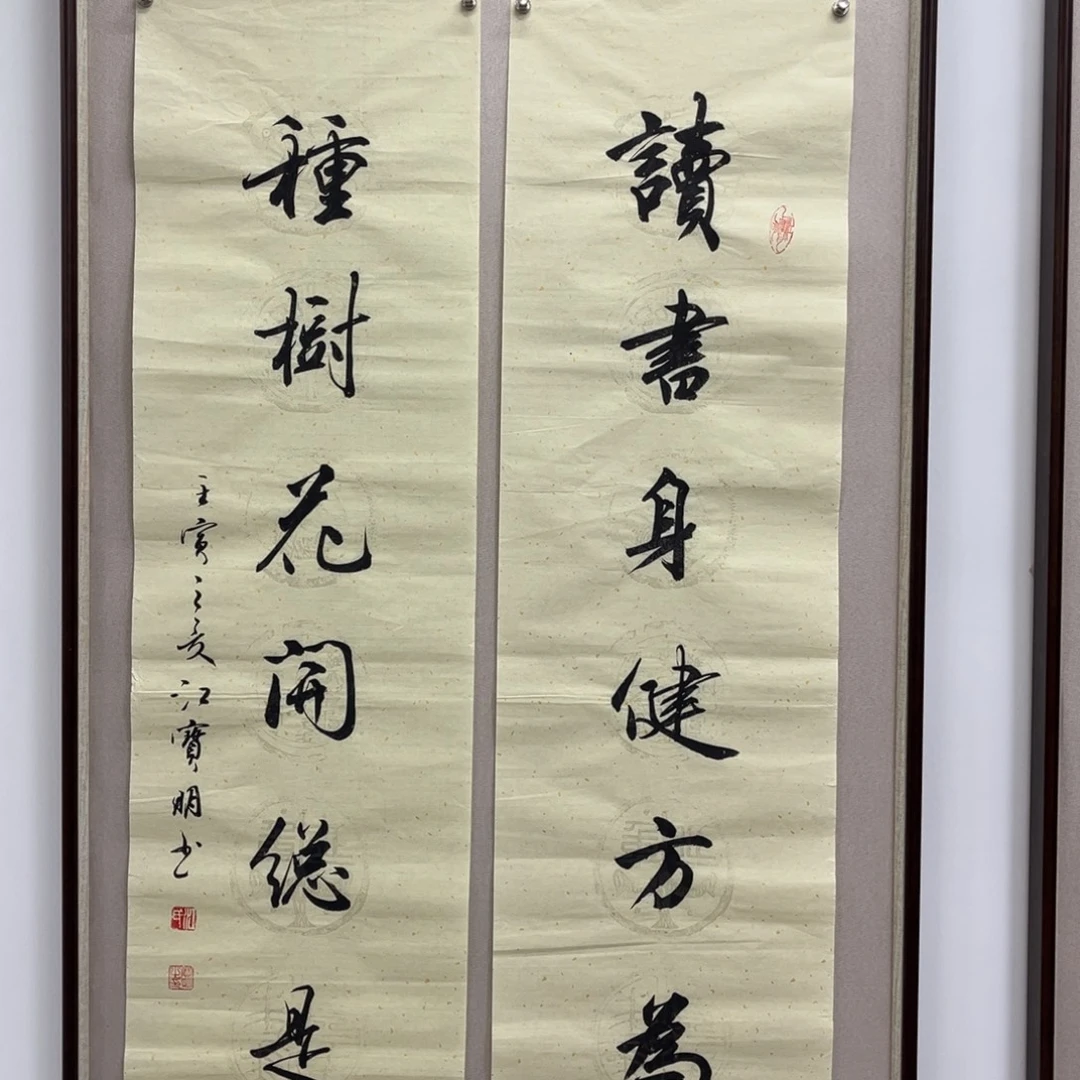 讀書身健方為
種樹花開總是
壬寅之夏江寶明書